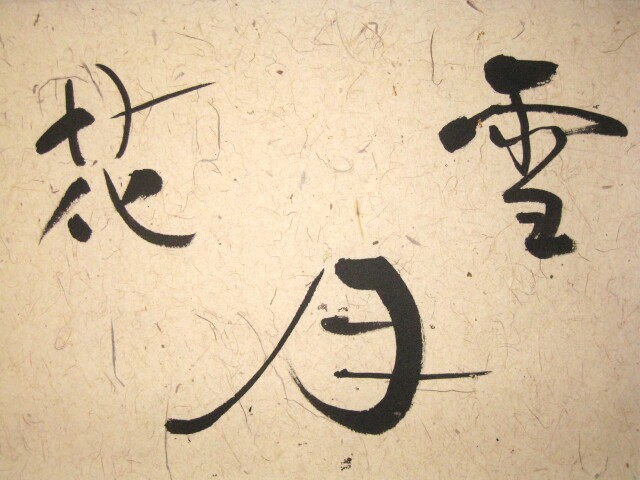 雪
月
花